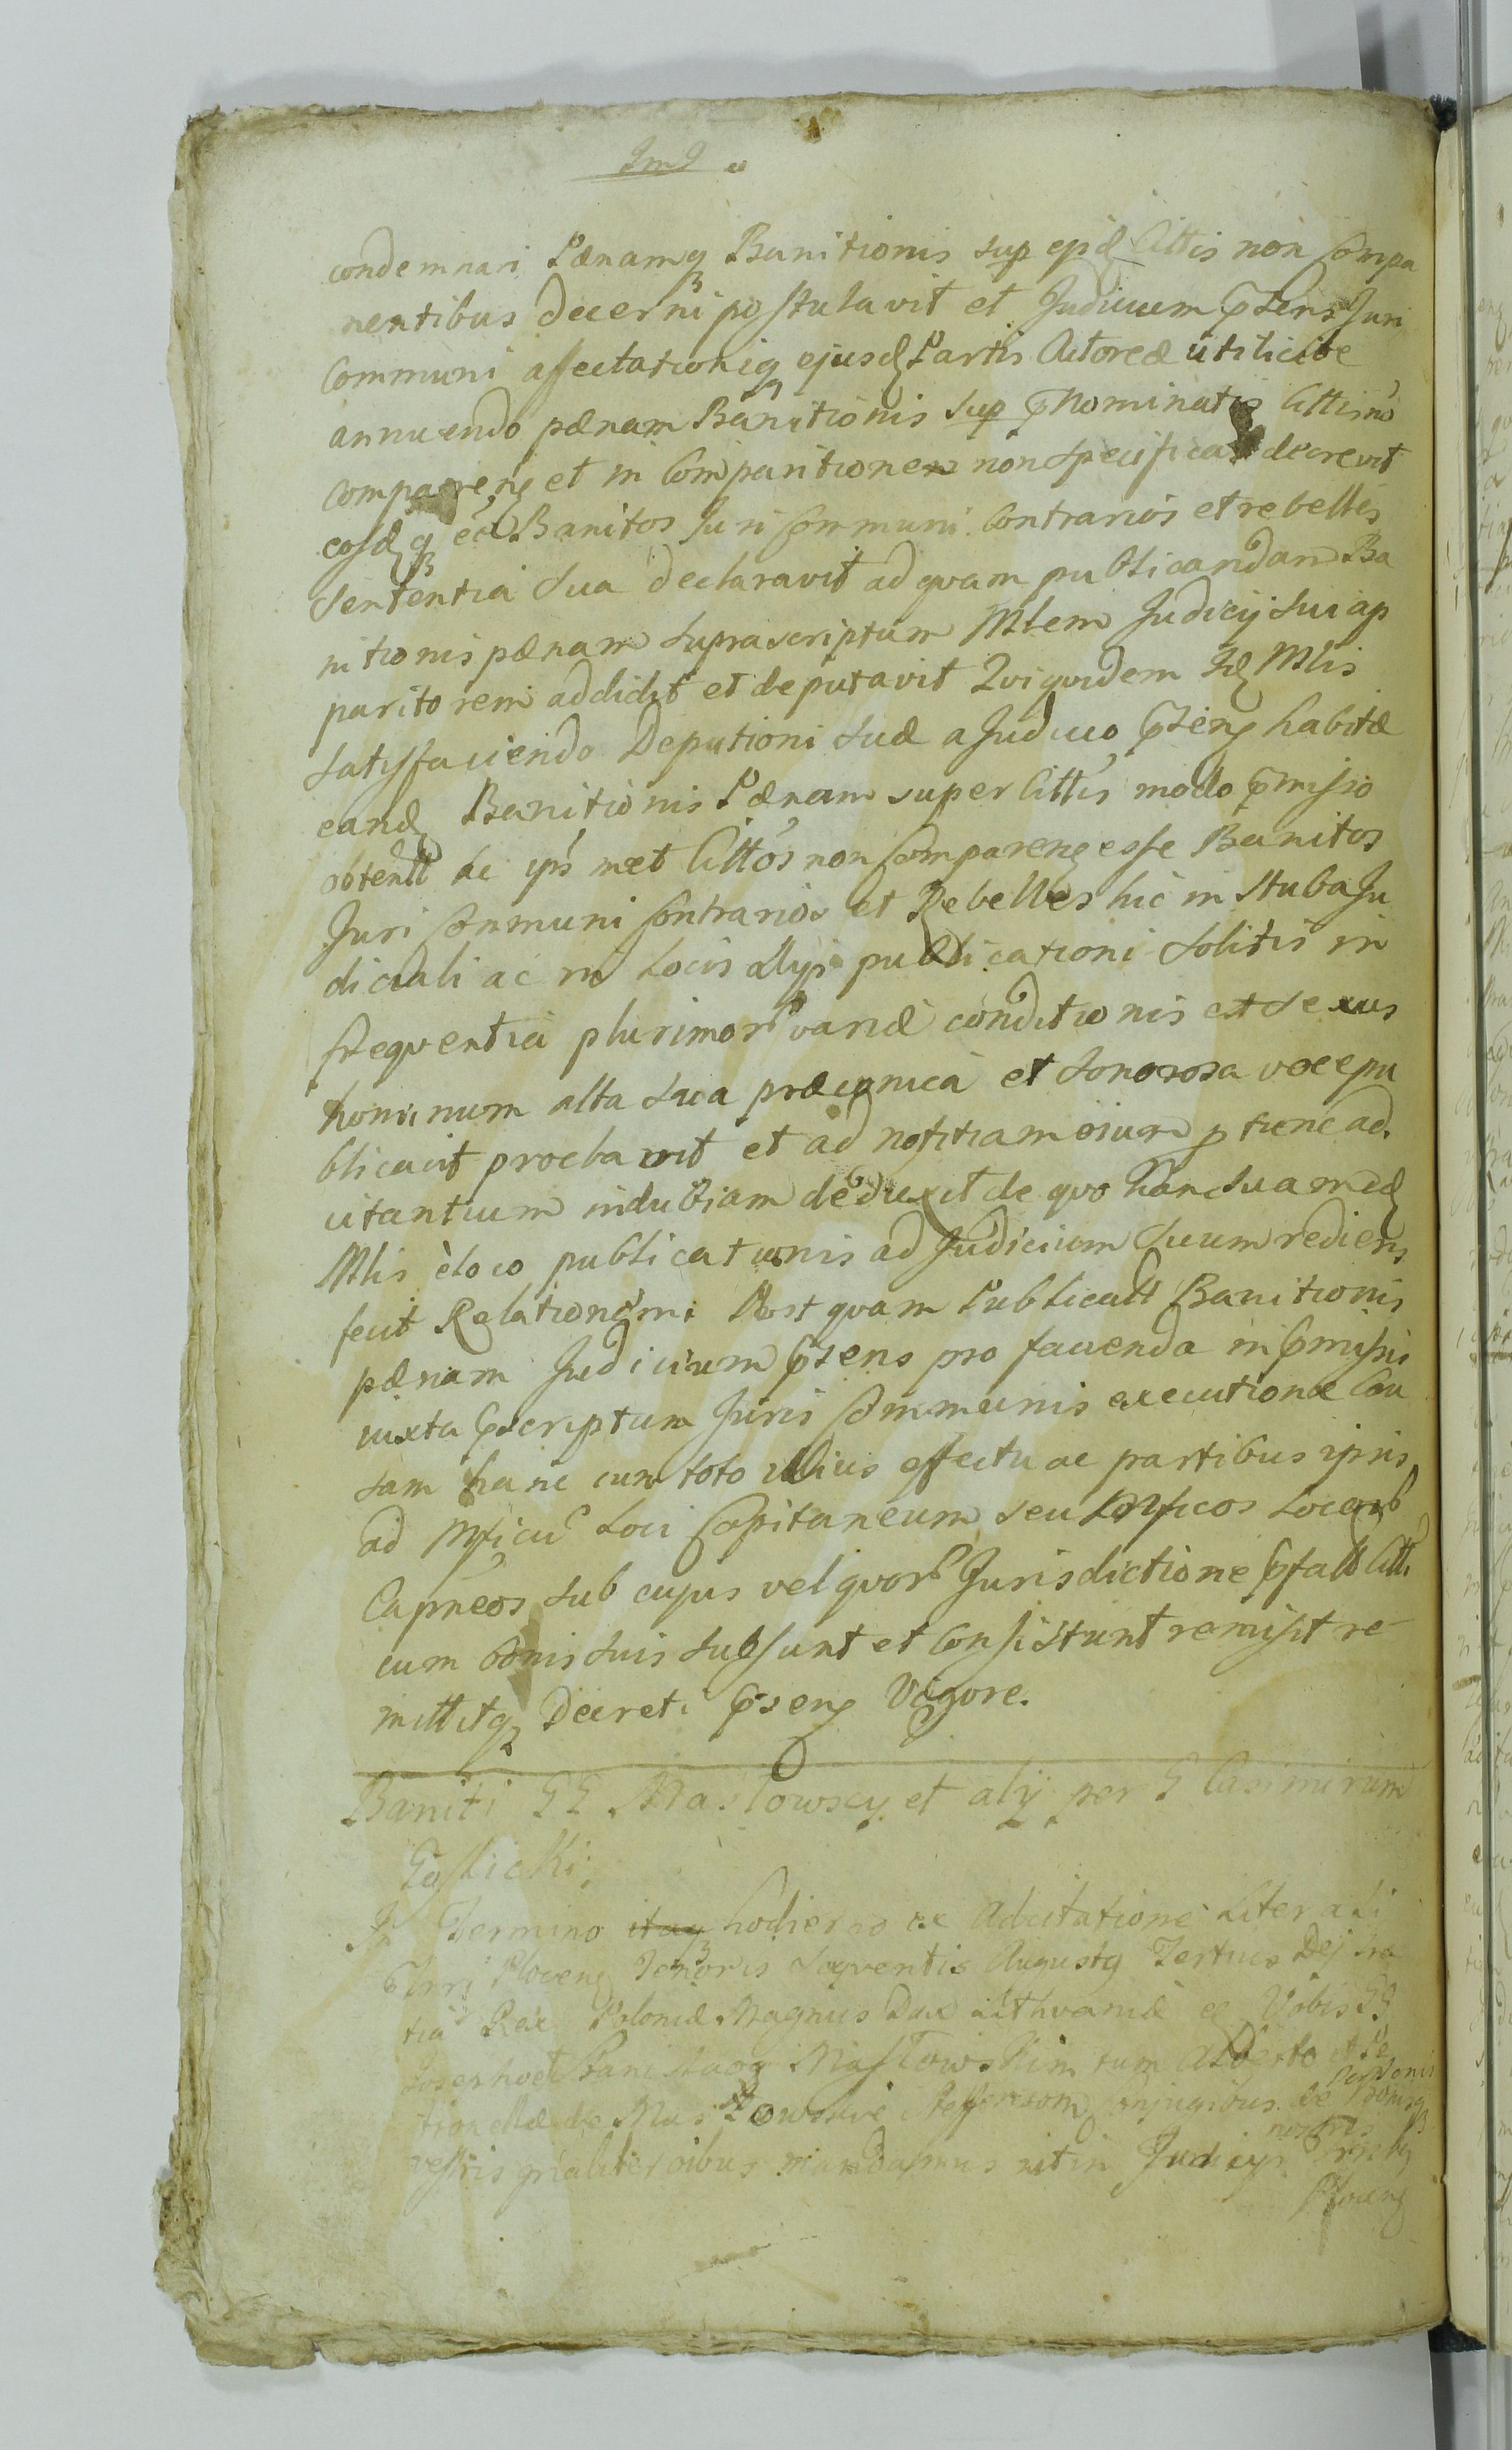 condemnari Pœnamq Banitionis sup ejsd Cittis non Compa
rentibus decerni postulavit et Judicium pstens Juri
Communi affectationiq ejusd Partis Actoreæ utilicite
annuendo pœnam Banitionis sup pnominatis Cittis no
comparen et in Comparitionem non specificat decrevit
eosdq ee Banitos Juri Communi Contrarios et rebelles
sententia sua declaravit ad quam publicandam Ba
nitionis pœnam suprascriptum Mlem Judicij sui ap
paritorem addidit et deputavit Qui quidem Id Mlis
satisfaciendo Deputioni suæ a Judicio psten habitæ
eand Banitionis Pœnam super Cittis modo pmisso
obtentt ac ips met Cittos non Comparen esse Banitos
Juri Communi Contrarios et Rebelles hic in stuba Ju
diciali ac in Locis Alijs publicationi solitis in
frequentia plurimor variæ conditionis et sexus
hominum alta sua præconica et sonorosa voce pu
blicavit proclamavit et ad notitiam oium p tunc ad
citantium indubiam deduxit de quo han sua med
Mlis e loco publicationis ad Judicium suum rediens
fecit Relationem Post quam Publicatt Banitionis
pœnam Judicium pstens pro facienda in pmissis
iuxta pscriptum Juris Communis executione Cau
sam hanc cum toto illius effectu ac partibus ipsis
ad Mficu Loci Capitaneum seu Mficos Locor
Capneos sub cujus vel quor Jurisdictione pfatt Citti
cum bonis suis subsunt et Consistunt remisit re
mittitq Decreti psen Vigore.
Baniti GG Masłowscy et alij per G Casimirum
Goslicki
In Termino itaq hodierno ex Adcitatione Literali
Ttrri Plocen Tenoris sequentis Augustq Tertius Dej Gra
tia Rex Poloniæ Magnus Dux Lithvaniæ &c Vobis GG
Josepho et Stanislao Masłowskim tum Alberto et Pe
tronellæ de Masłowskie Conjugibus de Personis Bonisq
vestris gnaliter oibus mandamus ut in Judicijs nostris
Plocen